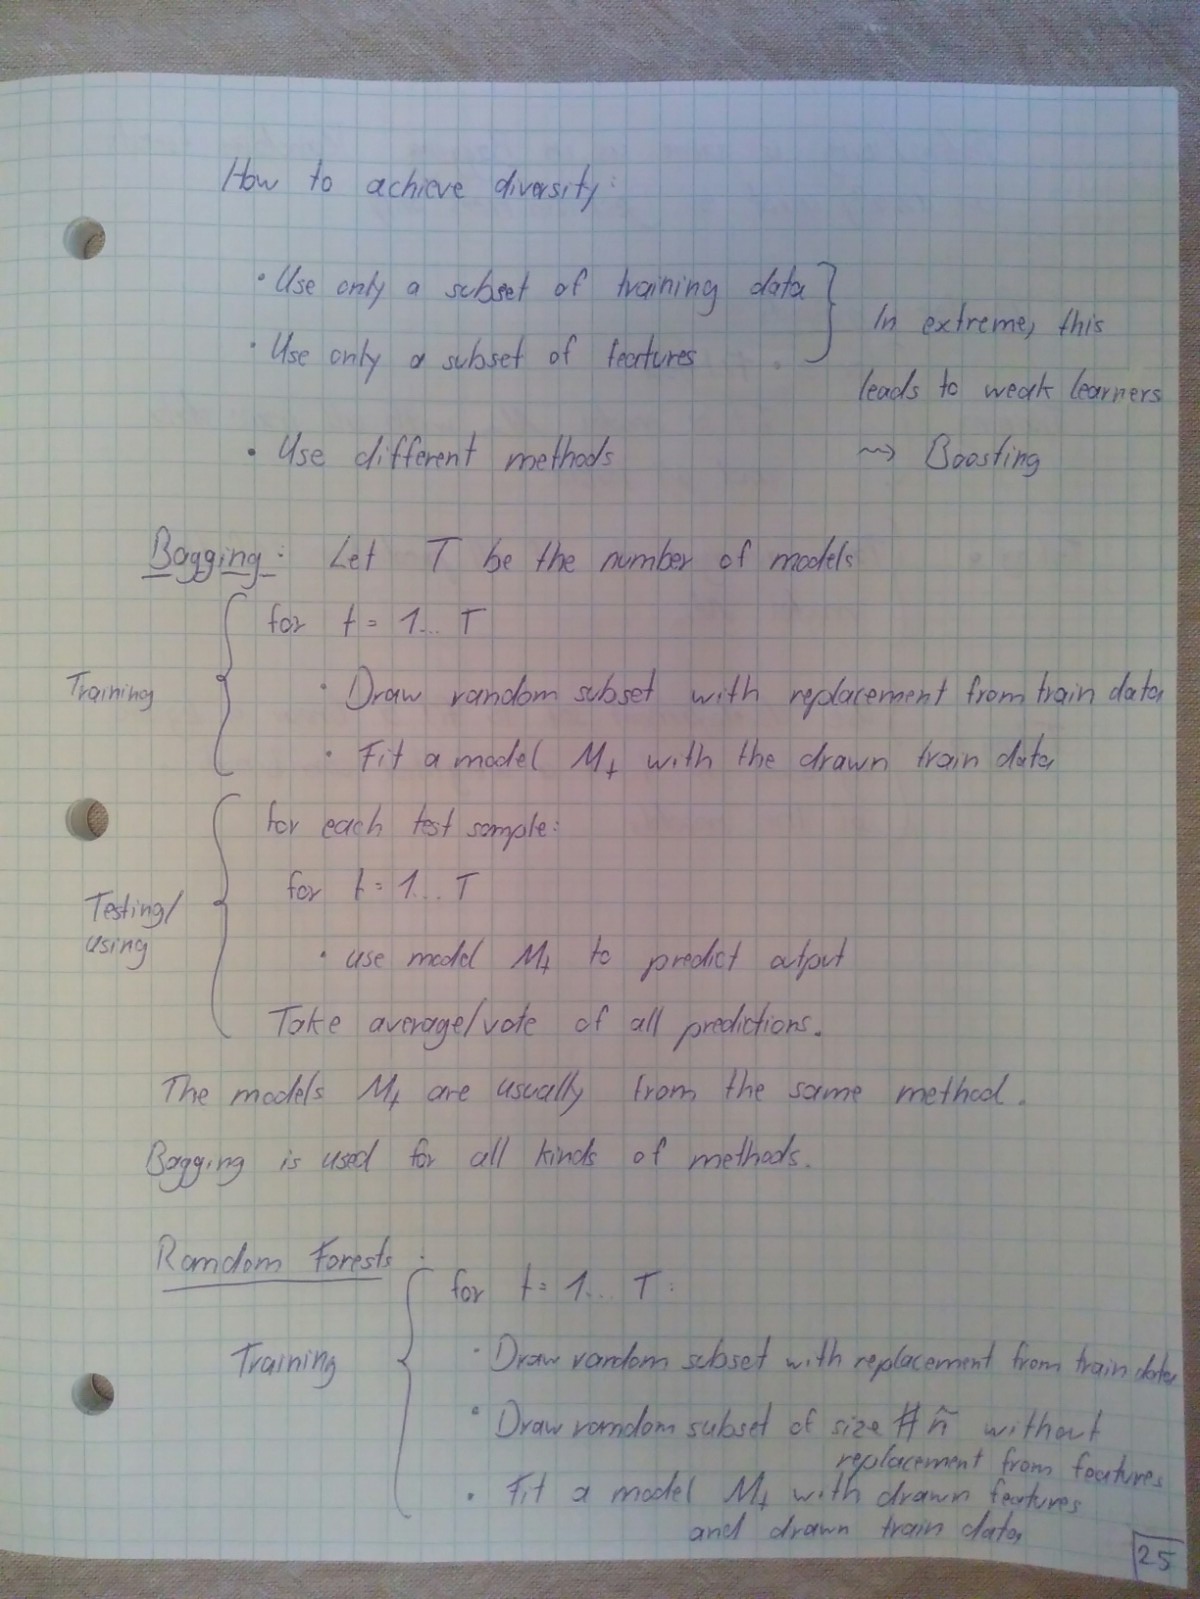 How to achieve diversity:
• Use only a subset of training data
• Use only a subset of features
In extreme, this
leads to weak learners
• Use different methods
⇝ Boosting
Bagging: Let T be the number of models
for t = 1... T
Training
• Draw random subset with replacement from train data
• Fit a model Mt with the drawn train data
for each test sample:
for t = 1... T
Testing/
using
• use model Mt to predict output
Take average/vote of all predictions.
The models Mt are usually from the same method.
Bagging is used for all kinds of methods.
Random Forests:
for t = 1... T:
Training
• Draw random subset with replacement from train data
• Draw random subset of size #ñ without
replacement from features
• Fit a model Mt with drawn features
and drawn train data
25